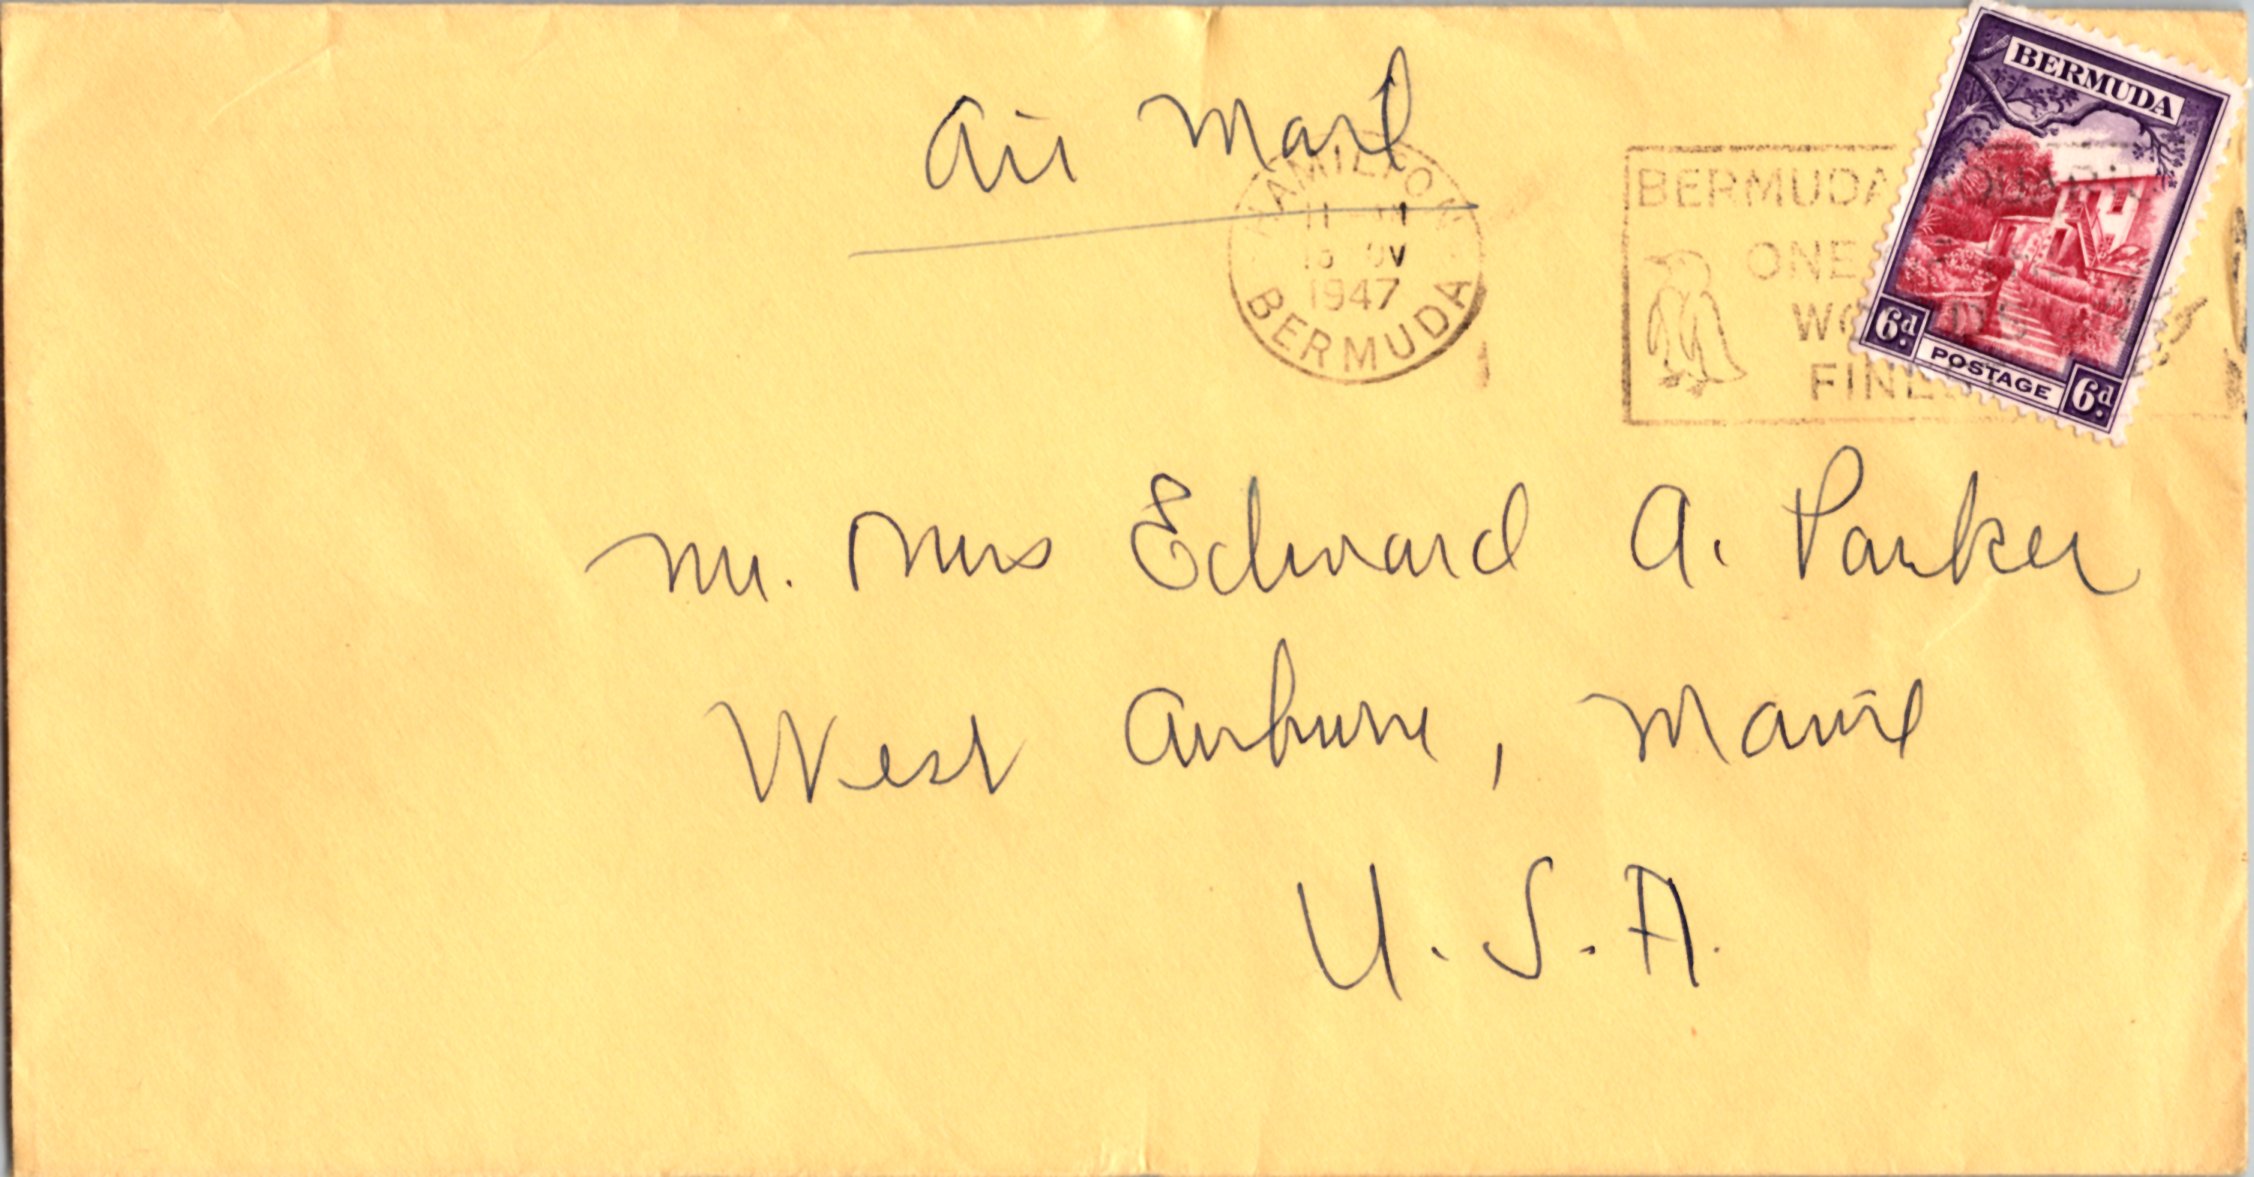 Air Mail
HAMILTON
1947
BERMUDA
BERMUDA
ONE
FINE
BERMUDA
6d
POSTAGE
6d
Mr. Mrs Edward A. Parker
West Auburn, Maine
U.S.A.